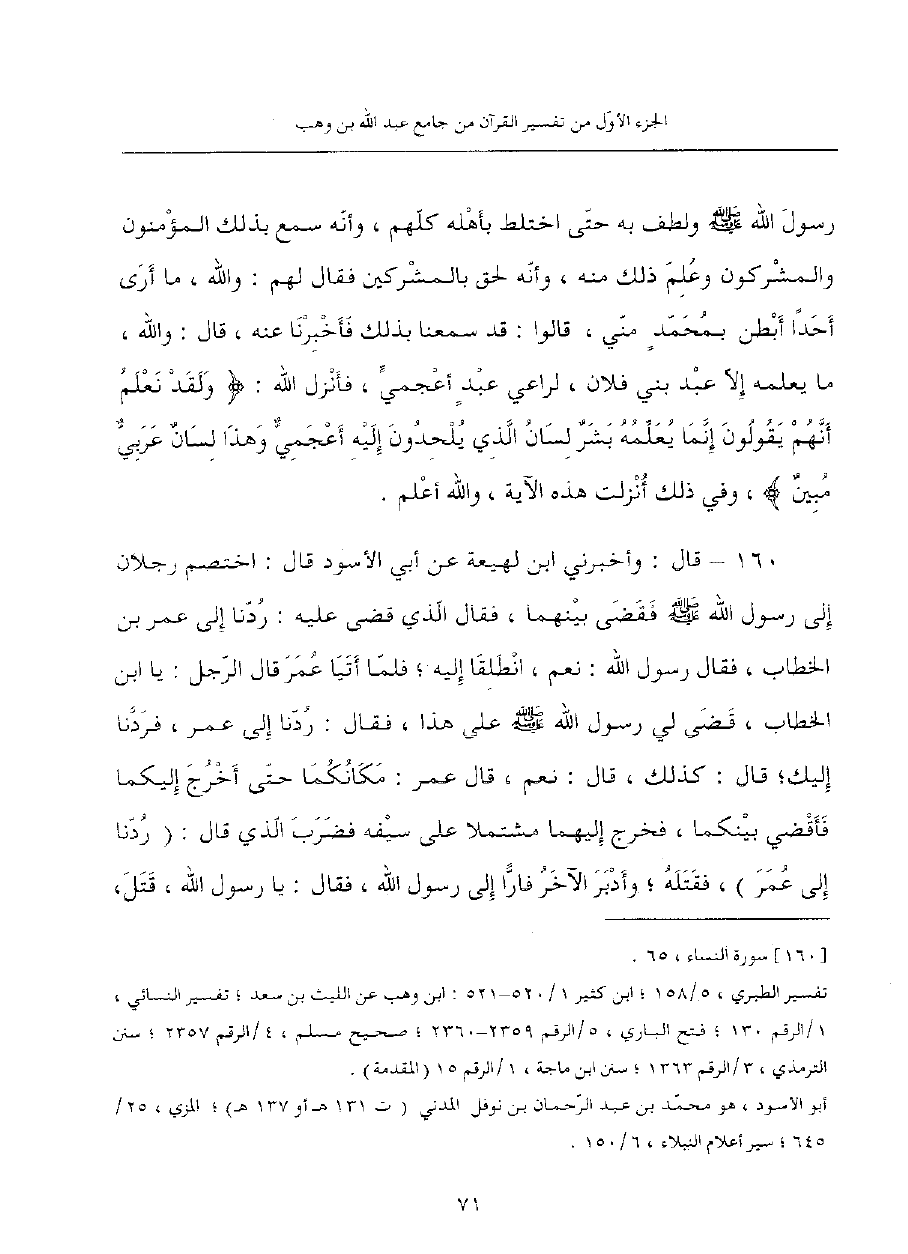 الجزء الأوّل من تفسير القرآن من جامع عبد الله بن وهب
رسولَ الله ﷺ ولطف به حتّى اختلط بأهْله كلّهم ، وأنّه سمع بذلك المؤْمنون
والمشْركون وعُلمَ ذلك منه ، وأنّه لحق بالمشْركين فقال لهم : والله ، ما أرَى
أحَداً أبْطن بمُحَمّدٍ منّي ، قالوا : قد سمعنا بذلك فَأخْبرْنَا عنه ، قال : والله ،
ما يعلمه إلاّ عبْد بني فلان ، لراعي عبْدٍ أعْجميٍّ ، فأنْزل الله : ﴿ وَلَقَدْ نَعْلَمُ
أنَّهُمْ يَقُولُونَ إنَّمَا يُعَلّمُهُ بَشَرٌ لسَانُ الَّذي يُلْحدُونَ إلَيْه أعْجَميٌّ وَهذَا لسَانٌ عَرَبيٌّ
مُبينٌ ﴾ ، وفي ذلك أُنْزلت هذه الآية ، والله أعْلم .
١٦٠ – قال : وأخبرني ابن لهيعة عن أبي الأسود قال : اختصم رجلان
إلى رسول الله ﷺ فَقَضَى بيْنهما ، فقال الّذي قضى عليه : رُدّنا إلى عمر بن
الخطاب ، فقال رسول الله : نعم ، انْطَلقَا إليه ؛ فلمّا أتَيَا عُمَرَ قال الرّجل : يا ابن
الخطاب ، قَضَى لي رسول الله ﷺ على هذا ، فقال : رُدّنا إلى عمر ، فردَّنا
إليك؛ قال : كذلك ، قال : نعم ، قال عمر : مَكَانَكُمَا حتّى أخْرُجَ إليكما
فَأَقْضي بيْنكما ، فخرج إليهما مشتملا على سيْفه فضَرَبَ الّذي قال : ( رُدّنا
إلى عُمَرَ ) ، فقتَلَهُ ؛ وأدْبَرَ الآخَرُ فارًّا إلى رسول الله ، فقال : يا رسول الله ، قَتَلَ،
[١٦٠] سورة النساء ، ٦٥ .
تفسير الطبري ، ١٥٨/٥ ؛ ابن كثير ١/ ٥٢٠–٥٢١ : ابن وهب عن الليث بن سعد ؛ تفسير النسائي ،
١/الرقم ١٣٠ ؛ فتح الباري ، ٥/الرقم ٢٣٥٩–٢٣٦٠ ؛ صحيح مسلم ، ٤/الرقم ٢٣٥٧ ؛ سنن
الترمذي ، ٣/الرقم ١٣٦٣ ؛ سنن ابن ماجة ، ١/الرقم ١٥ (المقدمة) .
أبو الأسود ، هو محمّد بن عبد الرّحمان بن نوفل المدني ( ت ١٣١ هـ أو ١٣٧ هـ) ؛ المزي ، ٢٥/
٦٤٥ ؛ سير أعلام النبلاء ، ٦/ ١٥٠ .
٧١